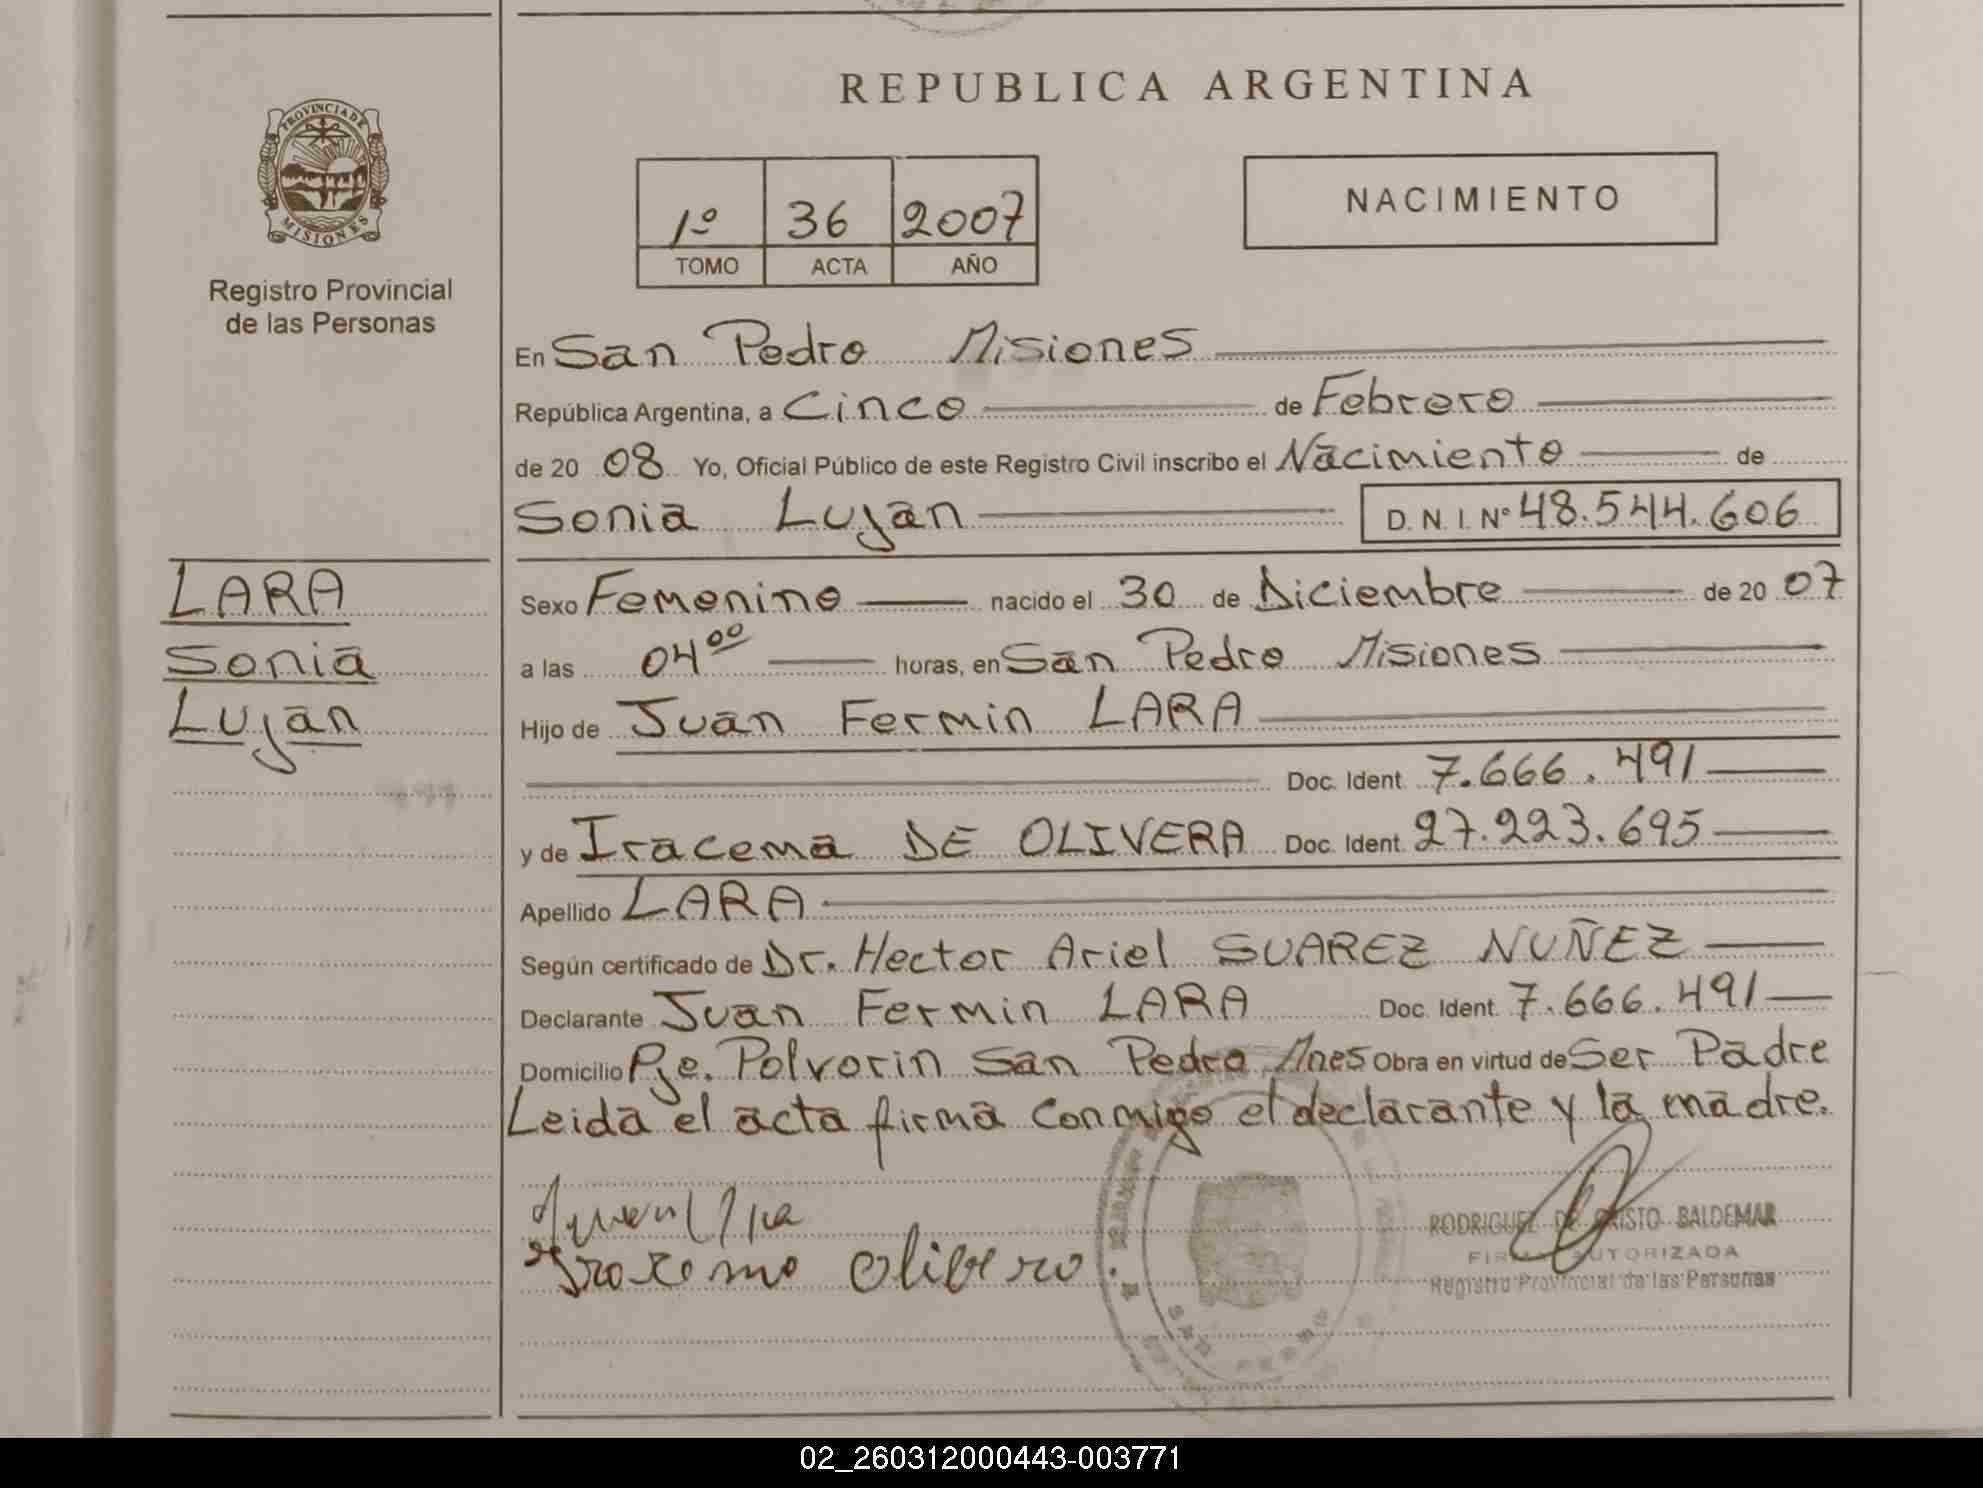 REPUBLICA ARGENTINA
PROVINCIA DE
MISIONES
Registro Provincial
de las Personas
1º 36 2007
TOMO ACTA AÑO
NACIMIENTO
En San Pedro Misiones
República Argentina, a Cinco de Febrero
de 20 08 Yo, Oficial Público de este Registro Civil inscribo el Nacimiento de
Sonia Lujan D. N. I. Nº 48.544.606
LARA
Sonia
Lujan
Sexo Femenino nacido el 30 de Diciembre de 20 07
a las 04 00 horas, en San Pedro Misiones
Hijo de Juan Fermin LARA
Doc. Ident. 7.666.491
y de Iracema DE OLIVERA Doc. Ident. 27.223.695
Apellido LARA
Según certificado de Dr. Hector Ariel SUAREZ NUÑEZ
Declarante Juan Fermin LARA Doc. Ident. 7.666.491
Domicilio Pje. Polvorin San Pedro Mnes Obra en virtud de Ser Padre
Leida el acta firma conmigo el declarante y la madre.
olibero
RODRIGUEZ DE CRISTO BALDEMAR
FIRMA AUTORIZADA
Registro Provincial de las Personas
SAN PEDRO
02_260312000443-003771